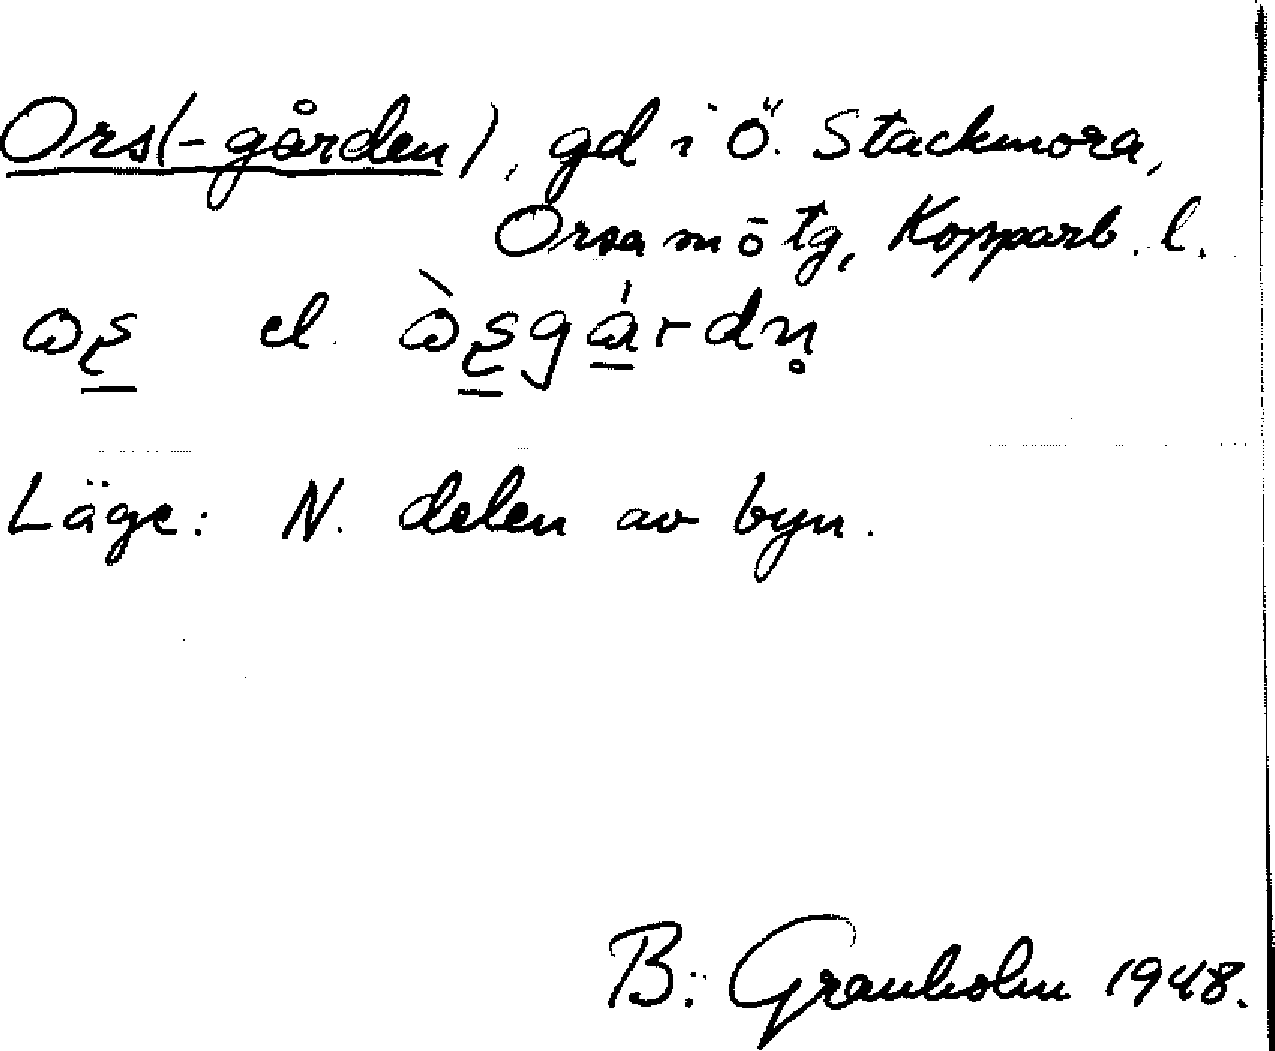 Ors(-gården), gd i Ö. Stackmora,
Orsa m ö tg, Kopparb. l.
el.
Läge: N. delen av byn.
B: Granholm 1948.